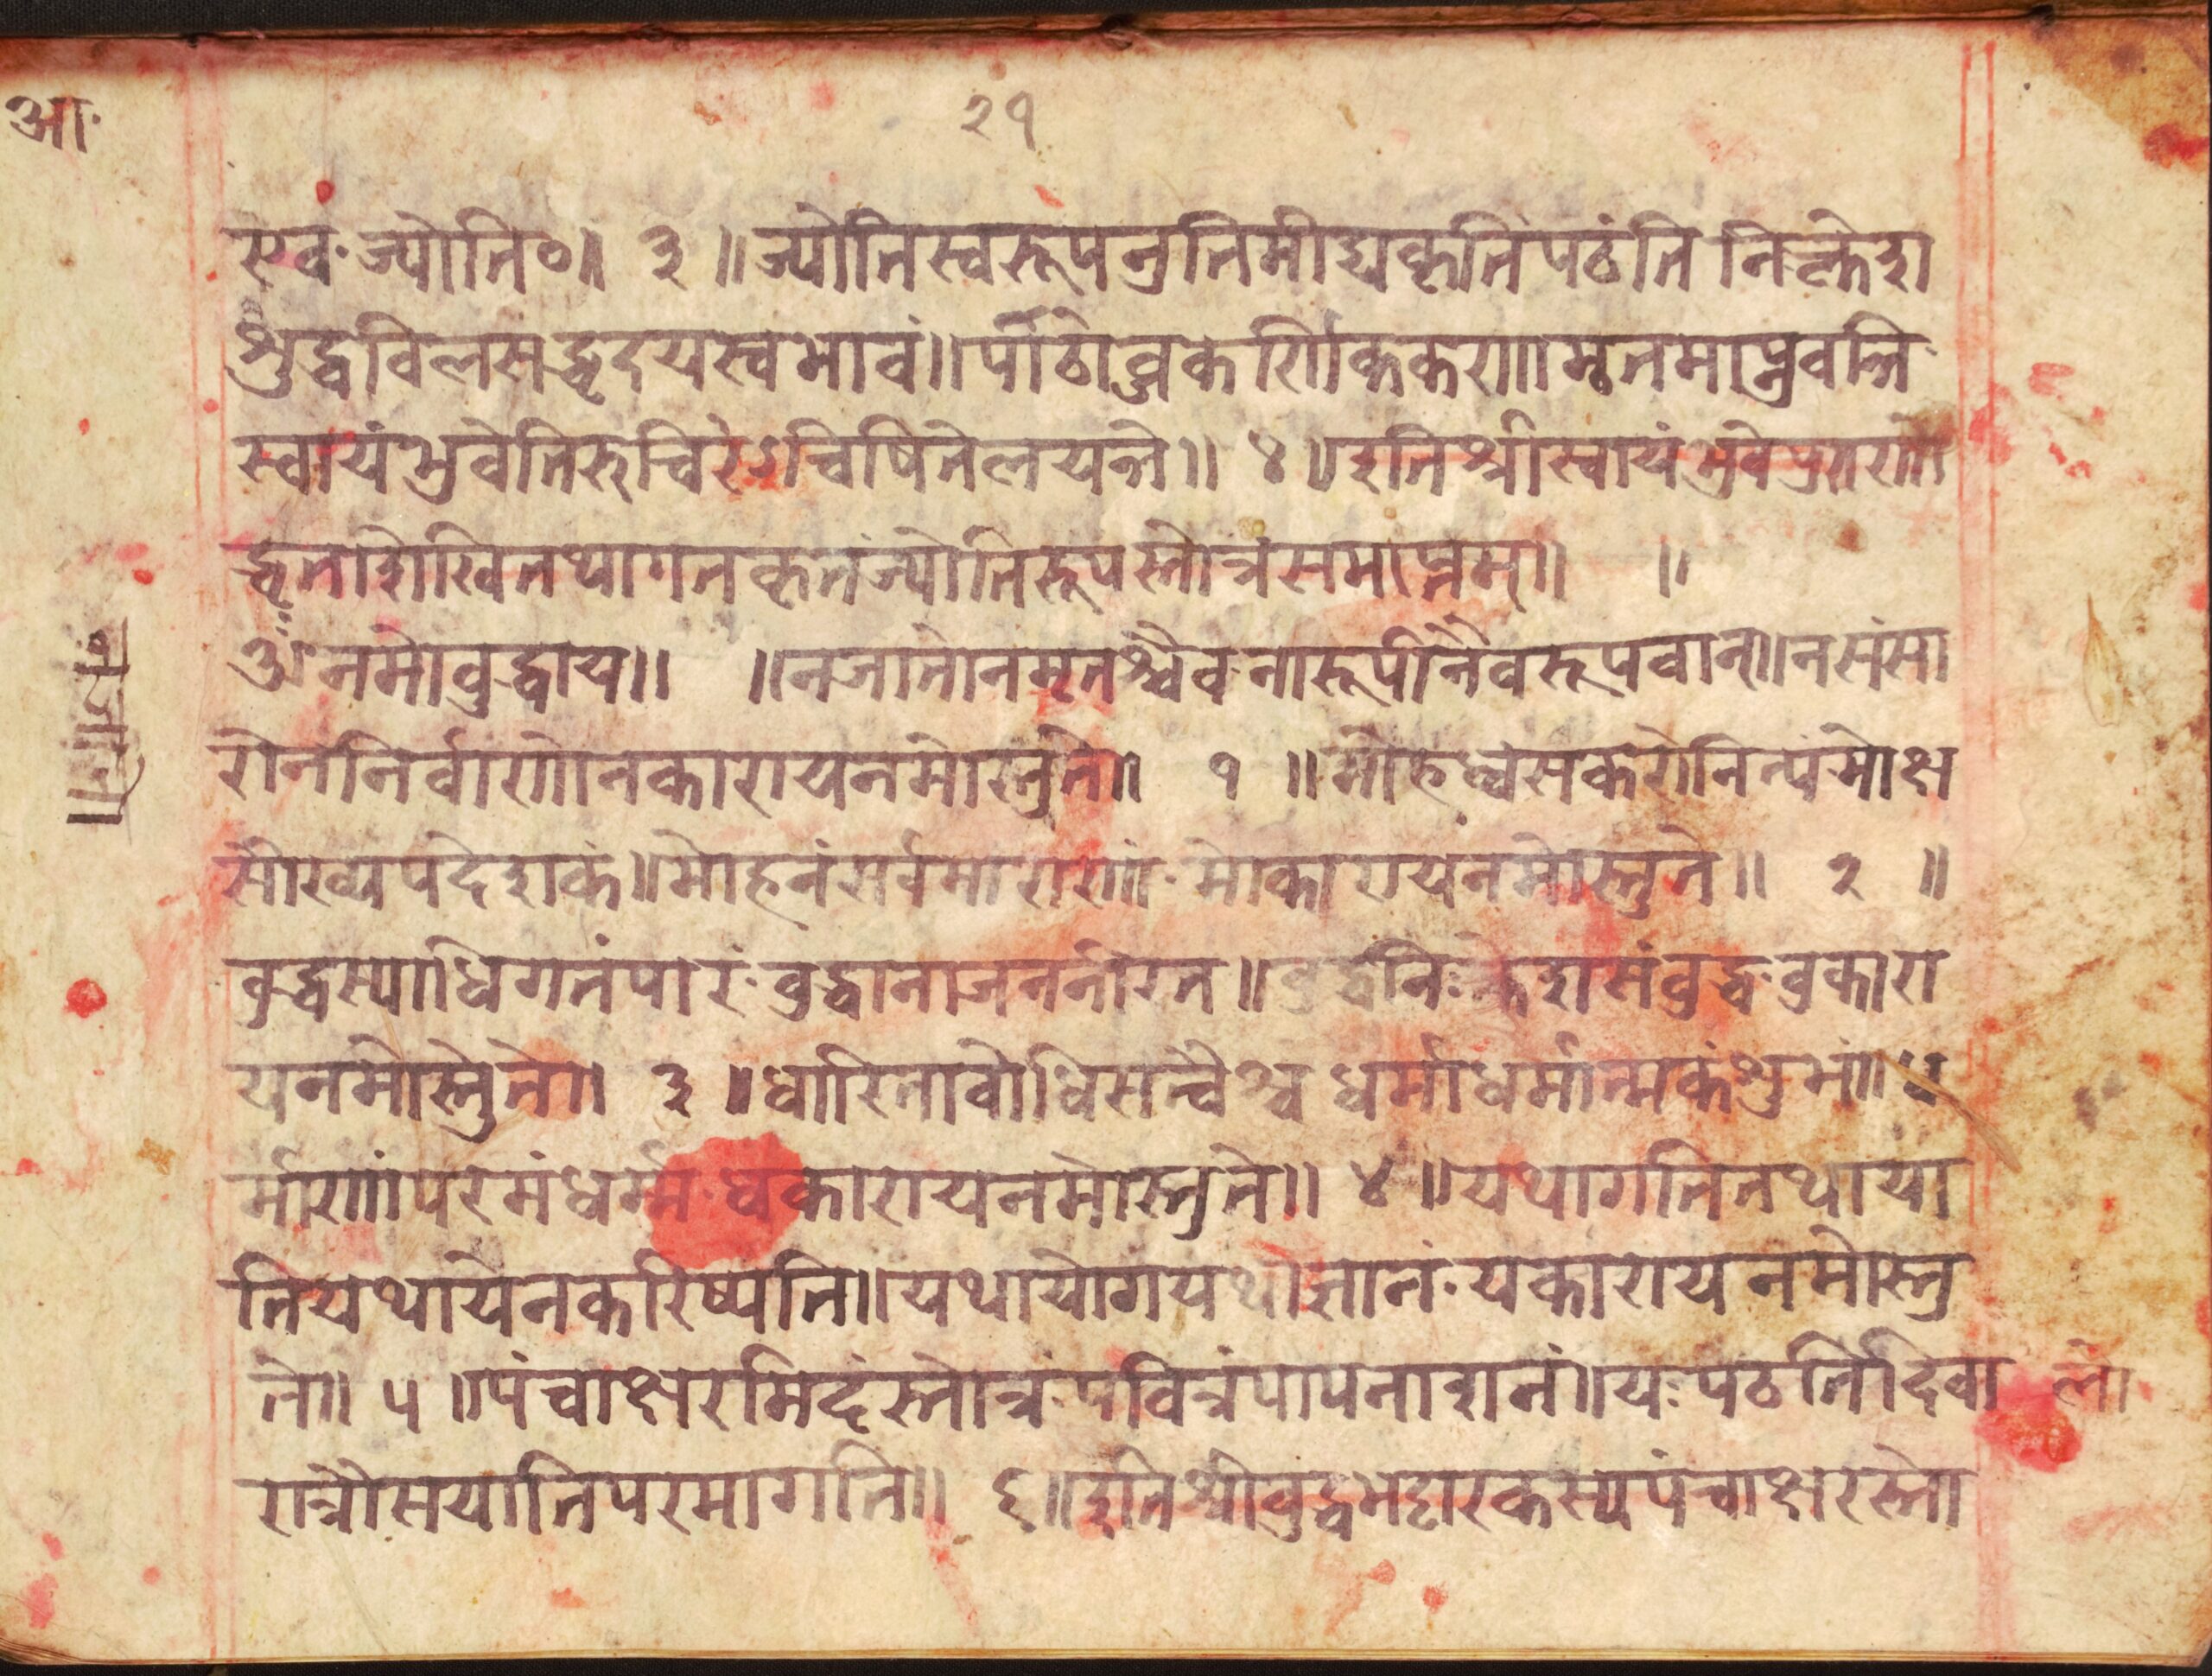 आ.
२१
एव ज्योति०॥ ३ ॥ज्योतिस्वरूपनुतिमीद्यकृतिपठंति निःक्लेश
शुद्धविलसद्धृदयस्वभावं॥ मृतमाप्नुवन्ति
स्वायंभुवेतिरुचिरेऽचिषितेलयन्ते॥ ४ ॥इतिश्रीस्वायंभुवेपुराणो
द्धृतशिखितथागतकृतंज्योतिरूपस्तोत्रंसमाप्तम्॥ ॥
ॐनमोवुद्धाय॥ ॥नजातोनमृतश्चैवनारूपीनैवरूपवान्॥नसंसा
रोननिर्वाणोनकारायनमोस्तुते॥ १ ॥मोहध्वंसकरोनित्यंमोक्ष
सौख्यपदेशकं॥मोहनंसर्वमाराणांमोकारायनमोस्तुते॥ २ ॥
वुद्धस्याधिगतंपारंवुद्धाना वुकारा
यनमोस्तुते॥ ३ ॥धारितावोधिसत्वैश्चधर्माधर्मात्मकंशुभं॥ध
र्माणांपरमंधर्म्मधकारायनमोस्तुते॥ ४ ॥यथागतितथाया
तियथायेनकरिष्यति॥यथायोगयथाज्ञानंयकारायनमोस्तु
ते॥ ५ ॥पंचाक्षरमिदंस्तोत्रंपवित्रंपापनाशनं॥यःपठतिदिवा
रात्रौसयातिपरमागति॥ ६॥इतिश्रीवुद्धभट्टारकस्यपंचाक्षरस्तो
नजातो